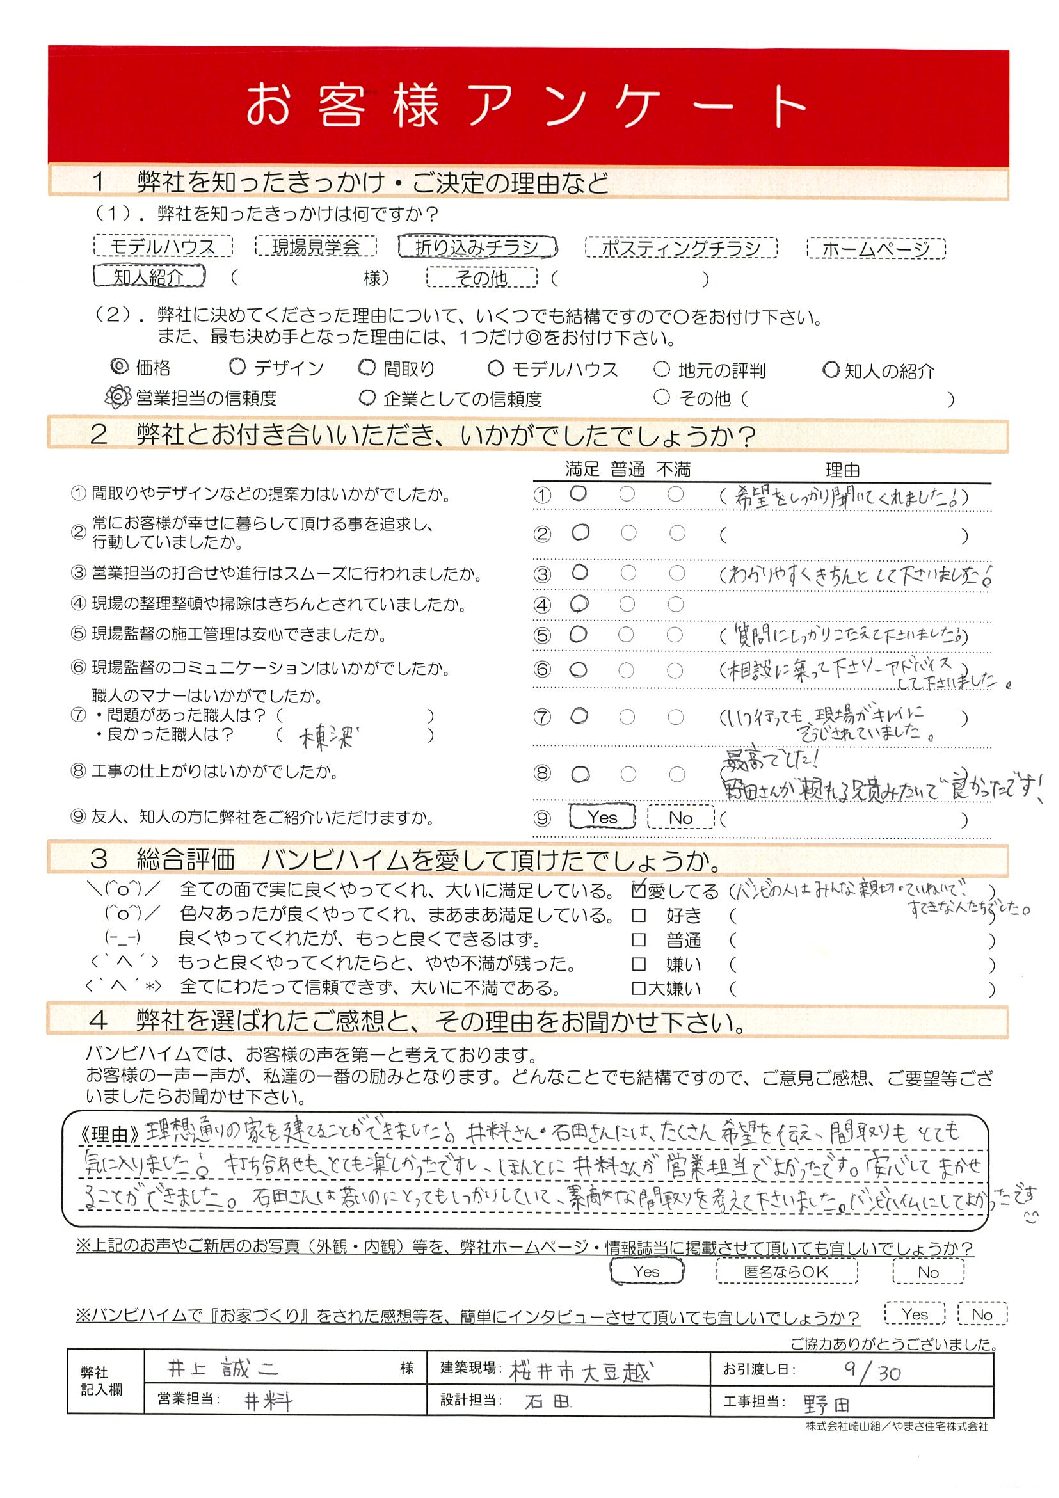 お客様アンケート
1 弊社を知ったきっかけ・ご決定の理由など
(1).弊社を知ったきっかけは何ですか?
モデルハウス 現場見学会 折り込みチラシ ポスティングチラシ ホームページ
知人紹介 ( 様) その他 ( )
(2).弊社に決めてくださった理由について、いくつでも結構ですので○をお付け下さい。
また、最も決め手となった理由には、1つだけ◎をお付け下さい。
◎ 価格 ○ デザイン ○ 間取り ○ モデルハウス ○ 地元の評判 ○ 知人の紹介
◎ 営業担当の信頼度 ○ 企業としての信頼度 ○ その他 ( )
2 弊社とお付き合いいただき、いかがでしたでしょうか?
満足 普通 不満 理由
① 間取りやデザインなどの提案力はいかがでしたか。 ① ○ ○ ○ (希望をしっかり聞いてくれました!)
② 常にお客様が幸せに暮らして頂ける事を追求し、
行動していましたか。 ② ○ ○ ○ ( )
③ 営業担当の打合せや進行はスムーズに行われましたか。 ③ ○ ○ ○ (わかりやすくきちんとして下さいました!)
④ 現場の整理整頓や掃除はきちんとされていましたか。 ④ ○ ○ ○
⑤ 現場監督の施工管理は安心できましたか。 ⑤ ○ ○ ○ (質問にしっかりこたえて下さいました!)
⑥ 現場監督のコミュニケーションはいかがでしたか。 ⑥ ○ ○ ○ (相談に乗って下さり、アドバイス)
して下さいました。
職人のマナーはいかがでしたか。
⑦ ・問題があった職人は?( ) ⑦ ○ ○ ○ (いつ行っても、現場がキレイに )
・良かった職人は? ( 棟梁 ) そうじされていました。
最高でした!
⑧ 工事の仕上がりはいかがでしたか。 ⑧ ○ ○ ○ (野田さんが頼れる兄貴みたいで良かったです!
⑨ 友人、知人の方に弊社をご紹介いただけますか。 ⑨ Yes No ( )
3 総合評価 バンビハイムを愛して頂けたでしょうか。
\(^o^)/ 全ての面で実に良くやってくれ、大いに満足している。 ☑愛してる (バンビの人はみんな親切・ていねいで、 )
すてきな人たちでした。
(^o^)/ 色々あったが良くやってくれ、まあまあ満足している。 □ 好き ( )
(-_-) 良くやってくれたが、もっと良くできるはず。 □ 普通 ( )
<`ヘ´> もっと良くやってくれたらと、やや不満が残った。 □ 嫌い ( )
<`ヘ´*> 全てにわたって信頼できず、大いに不満である。 □大嫌い ( )
4 弊社を選ばれたご感想と、その理由をお聞かせ下さい。
バンビハイムでは、お客様の声を第一と考えております。
お客様の一声一声が、私達の一番の励みとなります。どんなことでも結構ですので、ご意見ご感想、ご要望等ござ
いましたらお聞かせ下さい。
《理由》理想通りの家を建てることができました!井料さん・石田さんには、たくさん希望を伝え、間取りもとても
気に入りました!打ち合わせも、とても楽しかったですし、ほんとに井料さんが営業担当でよかったです。安心してまかせ
ることができました。石田さんは若いのにとってもしっかりしていて、素敵な間取りを考えて下さいました。バンビハイムにしてよかったです
※上記のお声やご新居のお写真(外観・内観)等を、弊社ホームページ・情報誌当に掲載させて頂いても宜しいでしょうか?
Yes 匿名ならOK No
※バンビハイムで『お家づくり』をされた感想等を、簡単にインタビューさせて頂いても宜しいでしょうか? Yes No
ご協力ありがとうございました。
弊社記入欄 井上誠二 様 建築現場: 桜井市大豆越 お引渡し日: 9/30
営業担当: 井料 設計担当: 石田 工事担当: 野田
株式会社崎山組/やまさ住宅株式会社